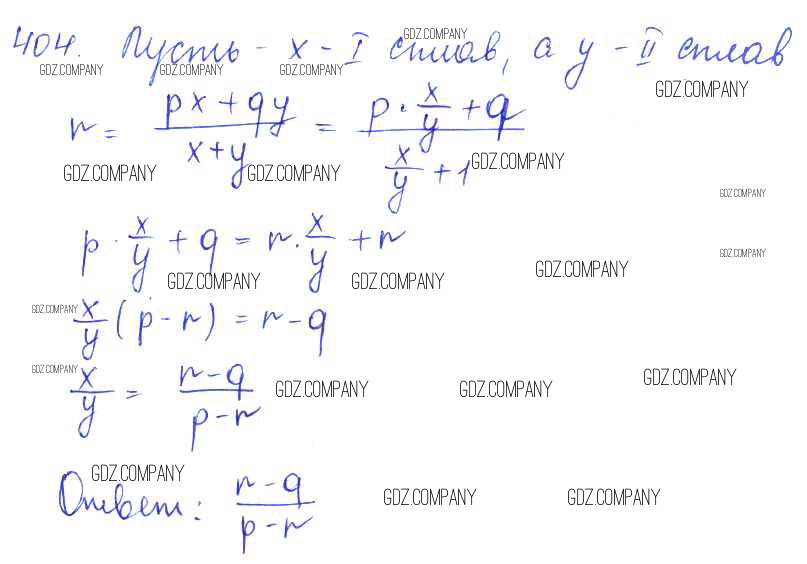 404. Пусть - x - I сплав, а y - II сплав
GDZ.COMPANY
GDZ.COMPANY GDZ.COMPANY GDZ.COMPANY
GDZ.COMPANY
r = (px + qy)/(x + y) = (p · x/y + q)/(x/y + 1)
GDZ.COMPANY GDZ.COMPANY GDZ.COMPANY
GDZ.COMPANY
p · x/y + q = r · x/y + r
GDZ.COMPANY
GDZ.COMPANY GDZ.COMPANY GDZ.COMPANY
x/y (p - r) = r - q
GDZ.COMPANY
GDZ.COMPANY
x/y = (r - q)/(p - r)
GDZ.COMPANY GDZ.COMPANY GDZ.COMPANY
GDZ.COMPANY
Ответ: (r - q)/(p - r)
GDZ.COMPANY GDZ.COMPANY